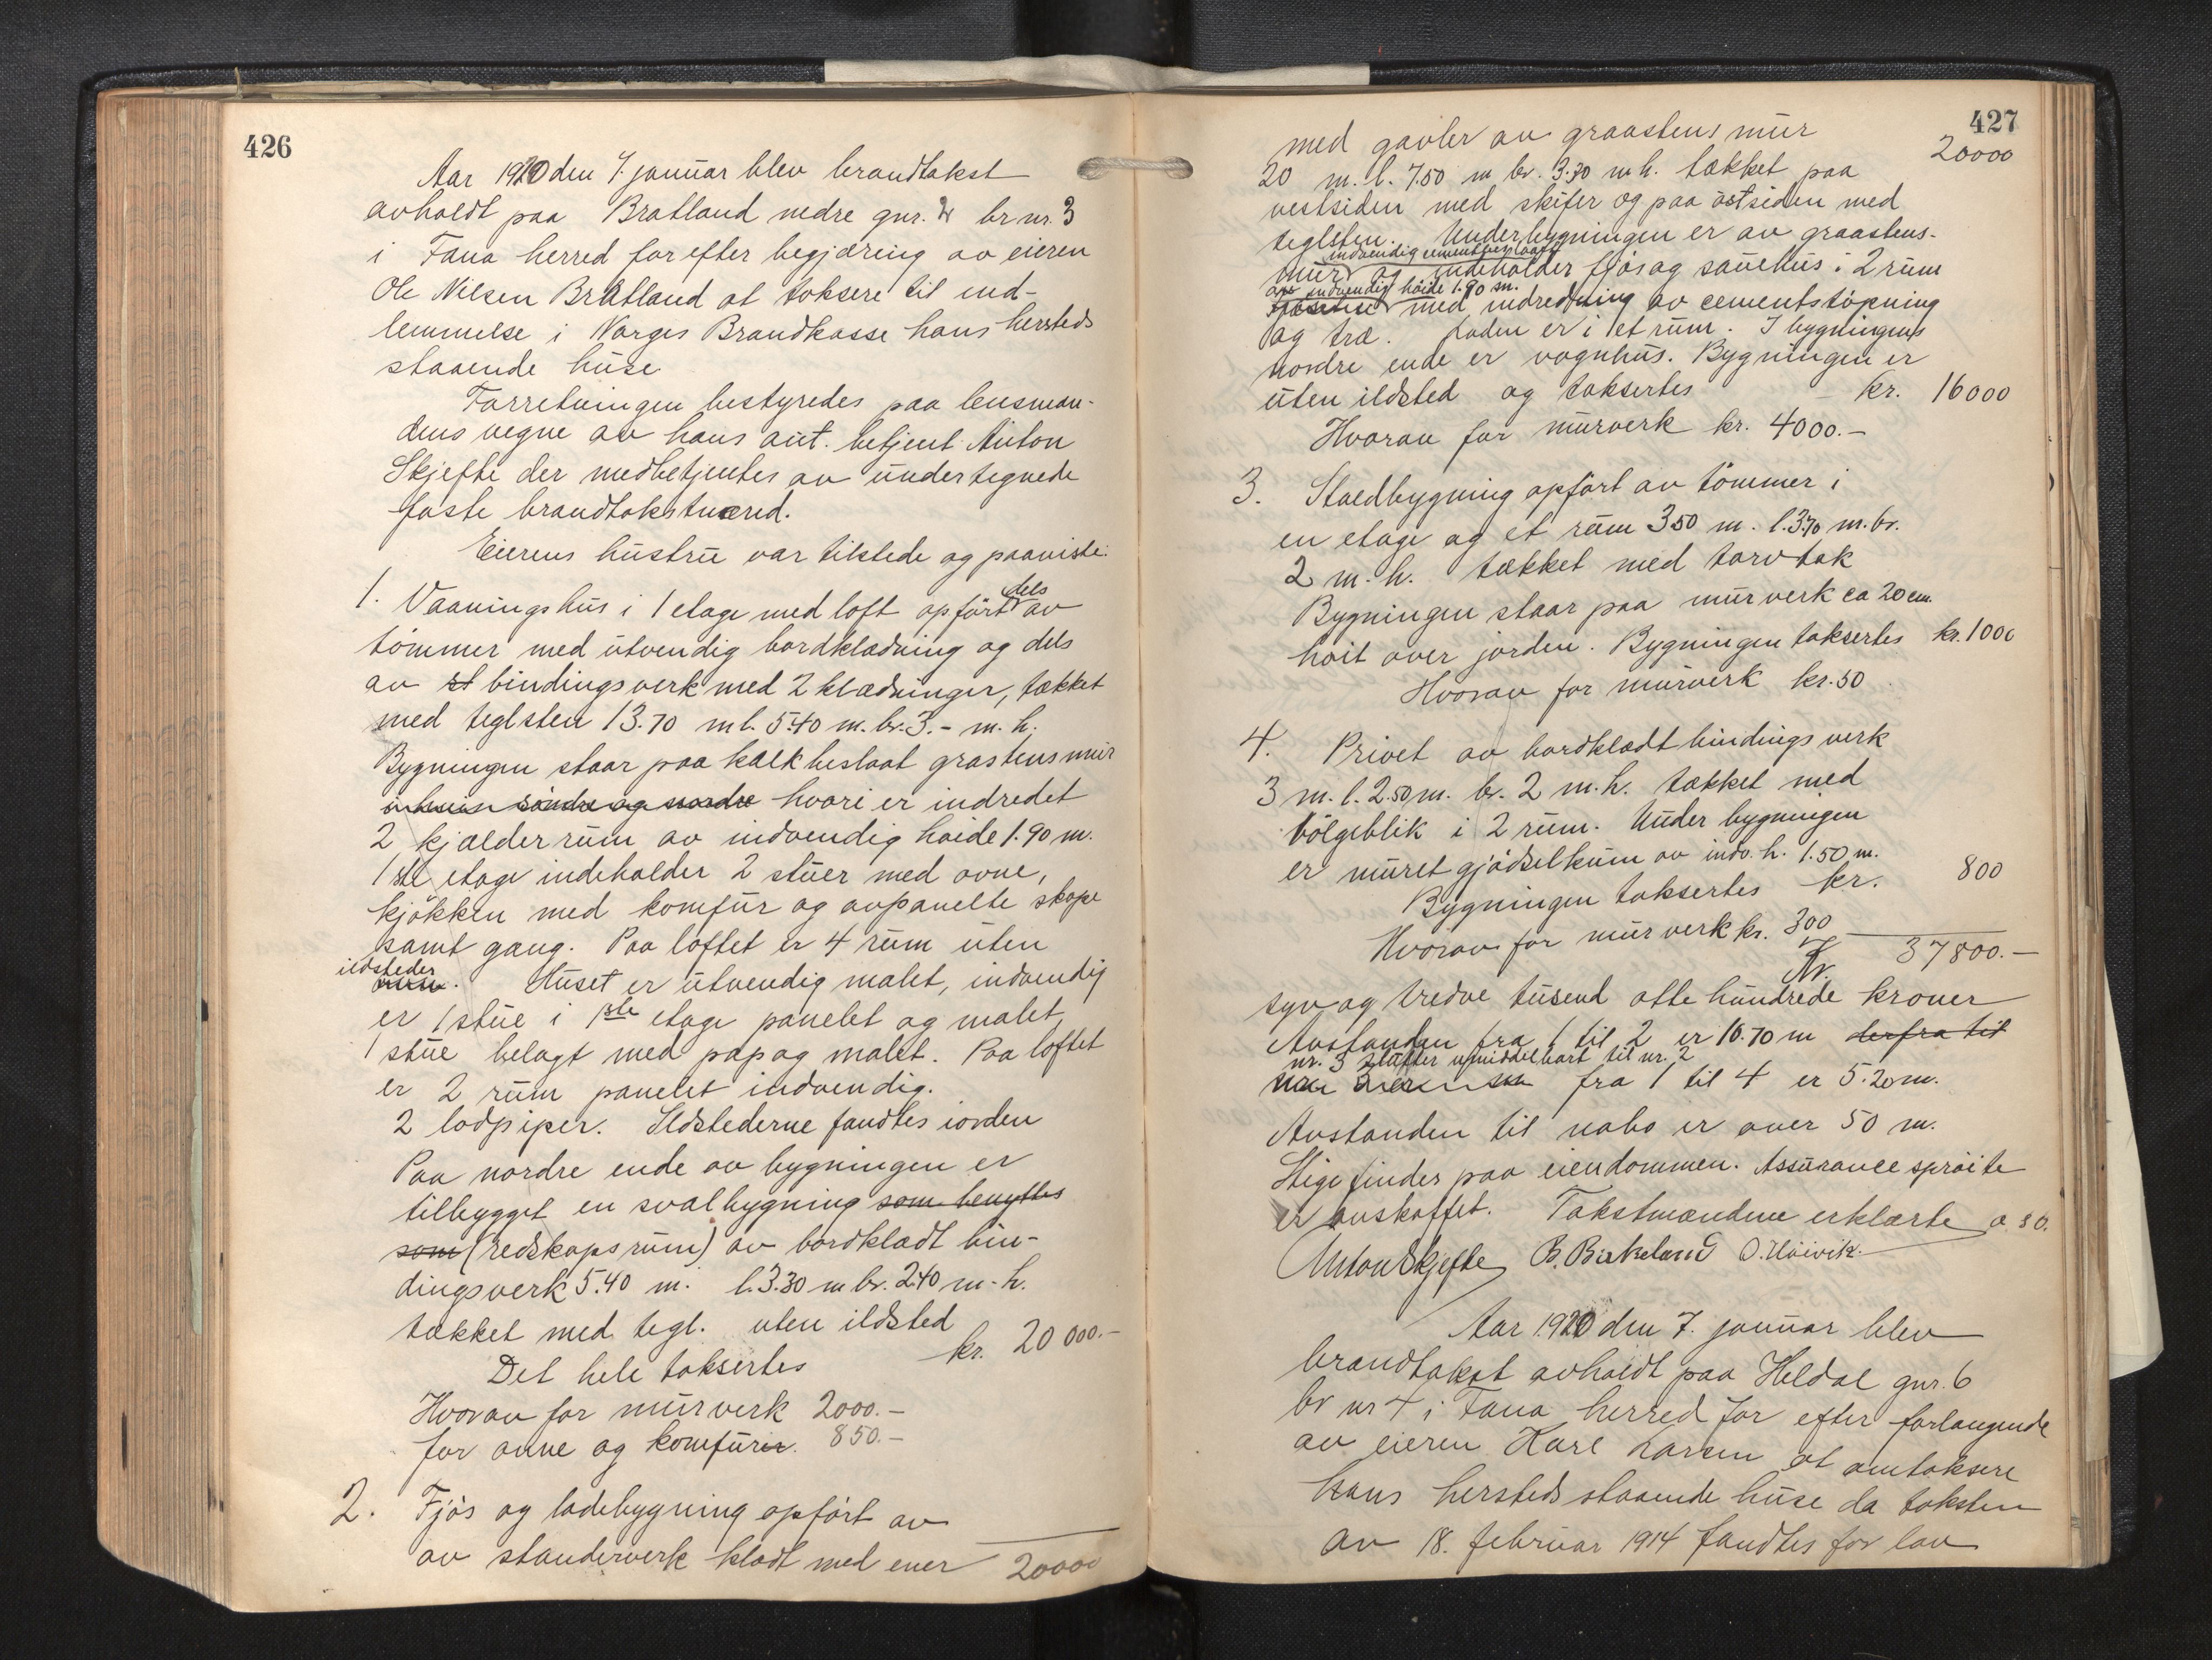 426
Aar 1920 den 7. januar blev brandtakst
avholdt paa Bratland nedre gnr. br nr. 3
i Fana herred for efter begjæring av eieren
Ole Nilsen Bratland at taksere til ind-
lemmelse i Norges Brandkasse hans hersteds
staaende huse
Forretningen bestyredes paa lensman-
dens vegne av hans aut. betjent Anton
Skjefte der medbetjentes av undertegnede
faste brandtakstmænd.
Eierens hustru var tilstede og paaviste:
1. Vaaningshus i 1 etage med loft opført dels av
tømmer med utvendig bordklædning og dels
av bindingsverk med 2 klædninger, tækket
med teglsten 13.70 m l. 5.40 m. br. 3.- m. h.
Bygningen staar paa kalkbeslaat grastensmur
søndre og nordre hvori er indredet
2 kjælderrum av indvendig høide 1.90 m.
1ste etage indeholder 2 stuer med ovne,
kjøkken med komfur og avpanelte skape
samt gang. Paa loftet er 4 rum uten
ildsteder. Huset er utvendig malet, indvendig
er 1 stue i 1ste etage panelet og malet,
1 stue belagt med pap og malet. Paa loftet
er 2 rum panelet indvendig.
2 lodpiper. Ildstederne fandtes iorden
Paa nordre ende av bygningen er
tilbygget en svalbygning som benyttes
som (redskapsrum) av bordklædt bin-
dingsverk 5.40 m. l. 3.30 m br. 2.40 m. h.
tækket med tegl. uten ildsted
Det hele taksertes kr. 20 000.-
Hvorav for murverk 2000.-
for ovne og komfur. 850.-
2. Fjøs og ladebygning opført av
av standerverk klædt med ener
20000
427
med gavler av graastens mur
20000
20 m. l. 7.50 m br. 3.70 m h. tækket paa
vestsiden med skifer og paa østsiden med
teglsten. Underbygningen er av graastens-
indvendig cementbeslaatt
mur og indeholder fjøs og sauehus i 2 rum
av indvendig høide 1.90 m.
med indredning av cementstøpning
og træ. Laden er i et rum. I bygningens
nordre ende er vognhus. Bygningen er
uten ildsted og taksertes kr. 16000
Hvorav for murverk kr. 4000.-
3. Staedbygning opført av tømmer i
en etage og et rum 3.50 m. l. 3.70 m. br.
2 m. h. tækket med torvtak
Bygningen staar paa murverk ca 20 cm.
høit over jorden. Bygningen taksertes kr. 1000
Hvorav for murverk kr. 50
4. Privet av bordklædt bindingsverk
3 m. l. 2.50 m. br. 2 m. h. tækket med
bølgeblik i 2 rum. Under bygningen
er muret gjødselkum av indv. h. 1.50 m.
Bygningen taksertes kr. 800
Hvorav for murverk kr. 300
Kr. 37800.-
syv og tredve tusend otte hundrede kroner
Avstanden fra 1 til 2 er 10.70 m derfra til
nr. 3 støtter umiddelbart til nr. 2
fra 1 til 4 er 5.20 m.
Avstanden til nabo er over 50 m.
Stige findes paa eiendommen. Assurancesprøite
er anskaffet. Takstmændene erklærte o. s. v.
Anton Skjefte B. Birkeland O. Høivik.
Aar 1920 den 7. januar blev
brandtakst avholdt paa Heldal gnr. 6
br nr 4 i Fana herred for efter forlangende
av eieren Karl Larsen at omtaksere
hans hersteds staaende huse da taksten
av 18. februar 1914 fandtes for lav